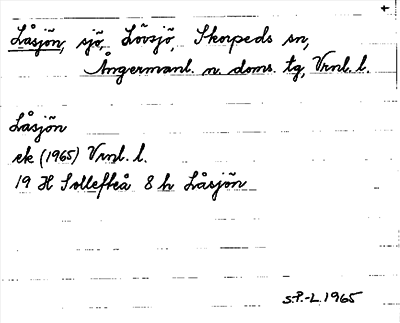 Låsjön, sjö, Lövsjö, Skorpeds sn,
Ångermanl. n. doms. tg, Vrnl. l.
Låsjön
ek (1965) Vrnl. l.
19 H Sollefteå 8 h Låsjön
S.P.-L. 1965